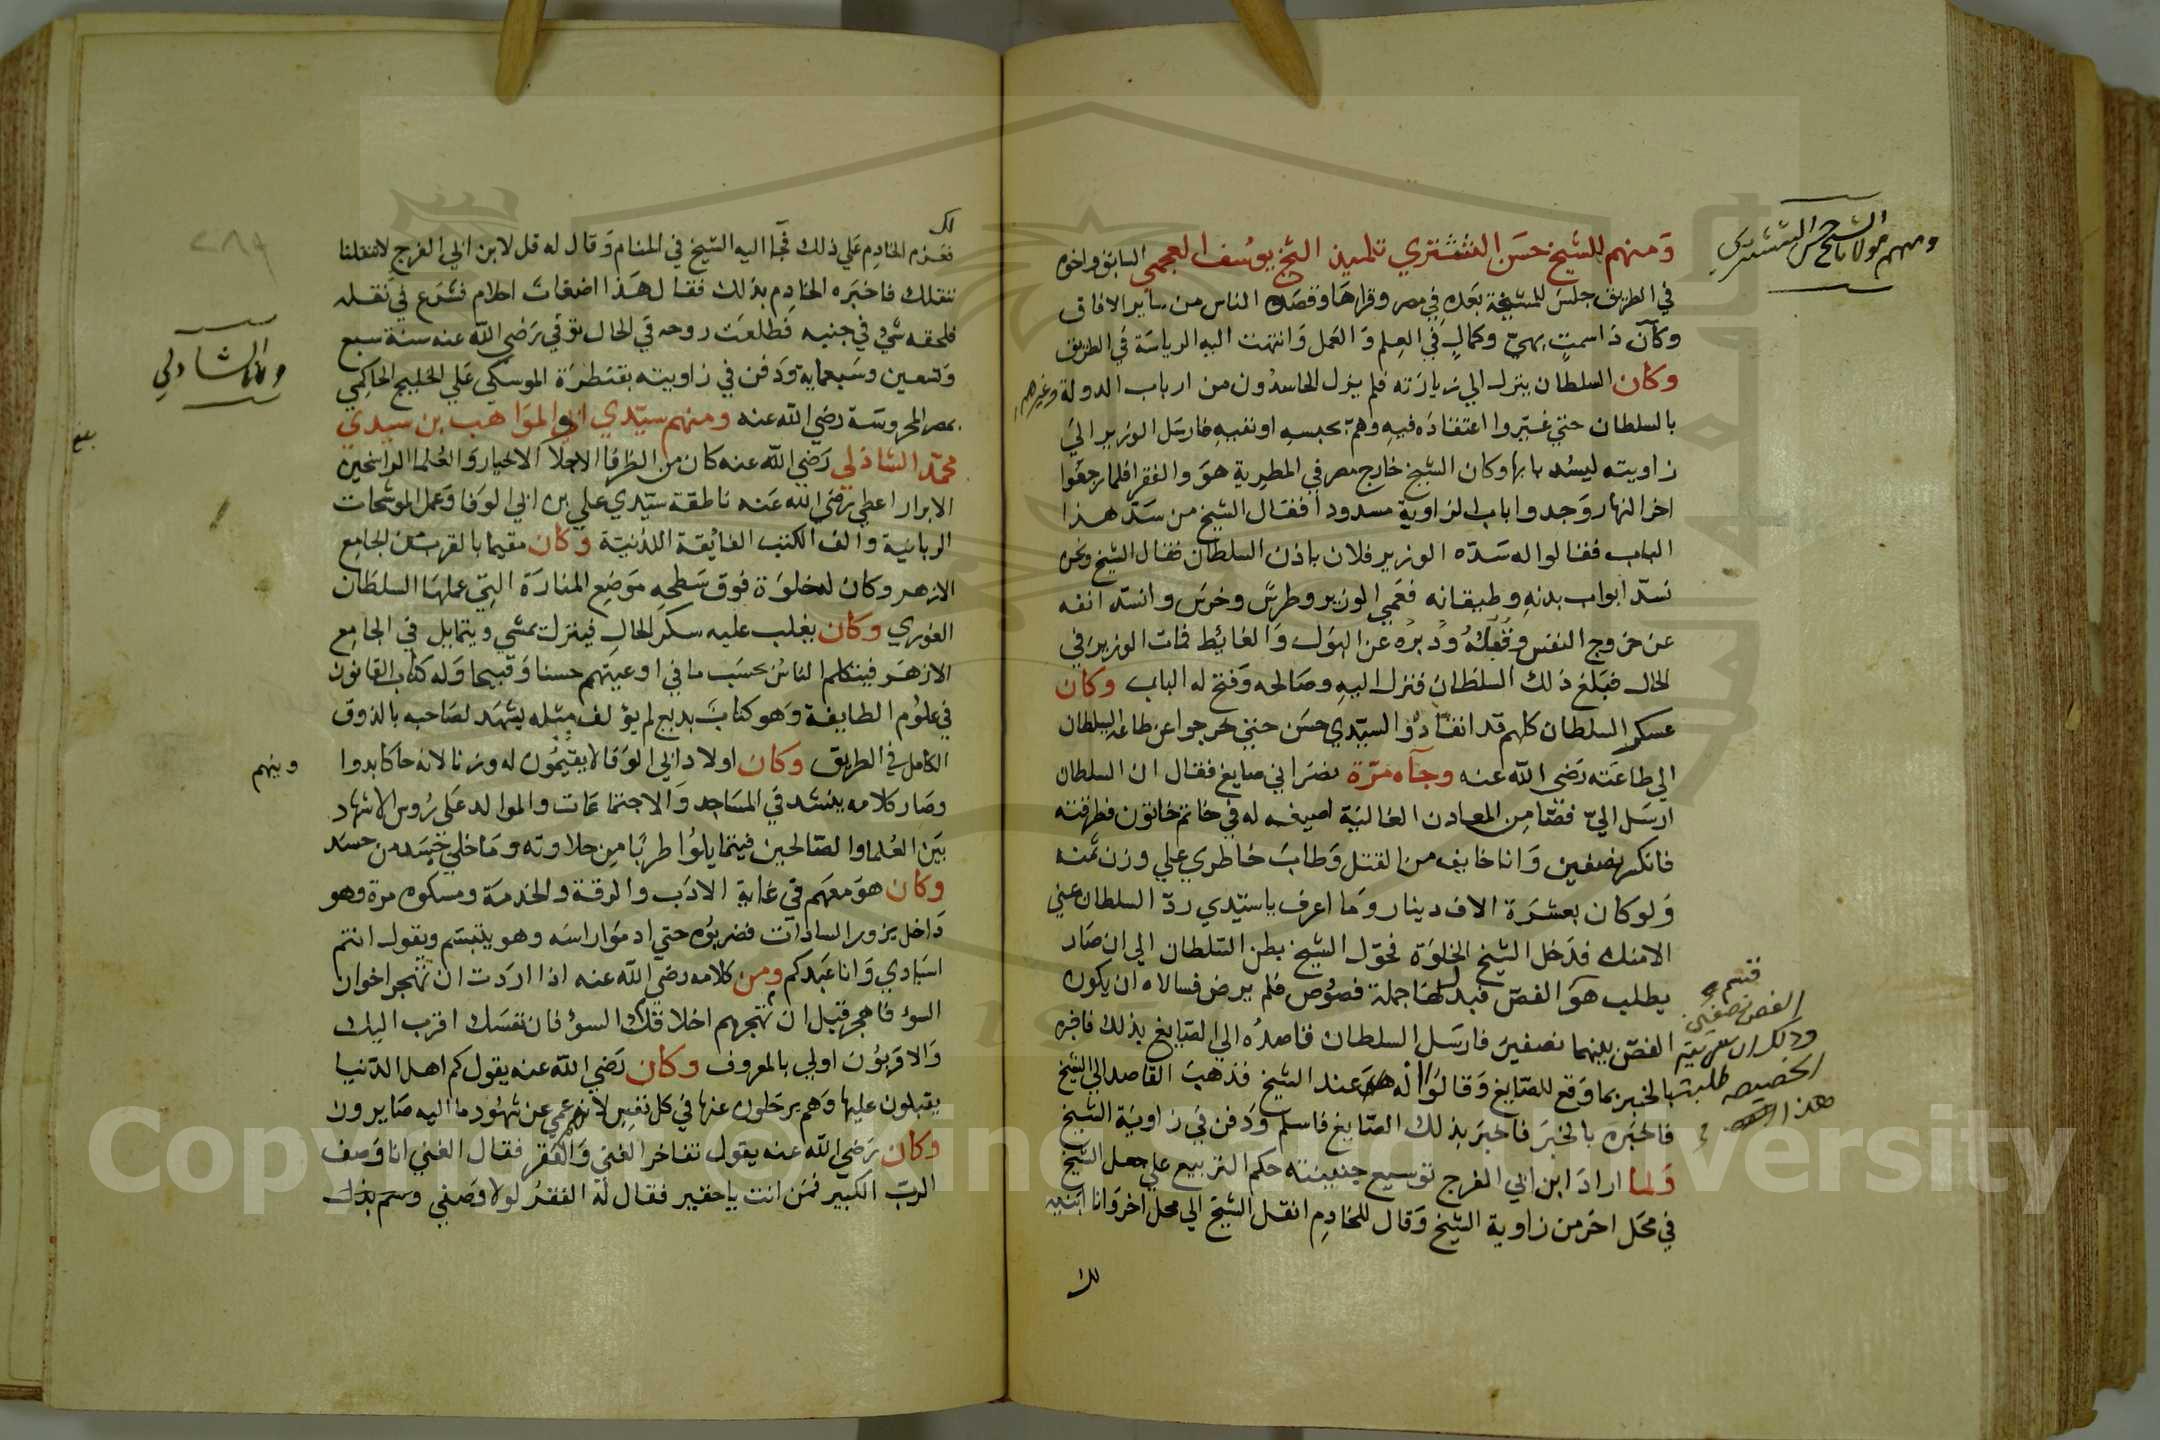 ومنهم الشيخ حسن التشتري تلميذ الشيخ يوسف العجمي السابق واخوه
في الطريق جلس للمشيخة بعده في مصر وقراها وقصده الناس من ساير الافاق
وكان ذا سمت بهي وكمال في العلم والعمل وانتهت اليه الرياسة في الطريق
وكان السلطان ينزل الي زيارته فلم يزل الحاسدون من ارباب الدولة وغيرهم
بالسلطان حتي غيروا اعتقاده فيه وهم بحبسه او نفيه فارسل الوزير الي
زاويته ليسد بابها وكان الشيخ خارج مصر في المطرية هو والفقرا فلما رجعوا
اخر النهار وجدوا باب الزاوية مسدودا فقال الشيخ من سد هذا
الباب فقالوا له سده الوزير فلان باذن السلطان فقال الشيخ ونحن
نسد ابواب بدنه وطيقانه فعمي الوزير وطرش وخرس وانسد انفه
عن خروج النفس وقبله ودبره عن البول والغائط فمات الوزير في
الحال فبلغ ذلك السلطان فنزل اليه وصالحه وفتح له الباب وكان
عسكر السلطان كلهم قد انقادوا لسيدي حسن حتي خرجوا عن طاعة السلطان
الي طاعته رضي الله عنه وجآه مرة نصراني صايغ فقال ان السلطان
ارسل الي فصا من المعادن الغالية اصيغه له في خاتم خاتون فطرقته
فانكسر نصفين وانا خايف من القتل وطاب خاطري علي وزن ثمنه
ولو كان بعشرة الاف دينار وما اعرف يا سيدي رد السلطان عني
الا منك فدخل الشيخ الخلوة فحول الشيخ بطن السلطان الي ان صار
يطلب هو الفص فبدلها جملة فصوص فلم يرض فسالاه ان يكون
الفص بينهما نصفين فارسل السلطان قاصده الي الصايغ بذلك فاخبره
بالخبر بما وقع للصايغ وقالوا انه عند الشيخ فذهب القاصد الي الشيخ
فاخبره بالخبر فاخبر بذلك الصايغ فاسلم ودفن في زاوية الشيخ
ولما اراد ابن ابي الفرج توسيع جنينته حكم التربيع علي جعل الشيخ
في محل اخر من زاوية الشيخ وقال للخادم انقل الشيخ الي محل اخر وانا ابنيه
لك
ومنهم مولانا الشيخ حسن التشتري
قسم
الفص نصفين
طلبت
هذا
لك
فعزم الخادم علي ذلك فجا اليه الشيخ في المنام وقال له قل لابن ابي الفرج لا تنقلنا
ننقلك فاخبره الخادم بذلك فقال هذا اضغاث احلام فشرع في نقله
فلحقه شي في جنبه فطلعت روحه في الحال توفي رضي الله عنه سنة سبع
وتسعين وسبعماية ودفن في زاويته بقنطرة الموسكي علي الخليج الحاكمي
بمصر المحروسة رضي الله عنه ومنهم سيدي ابو المواهب بن سيدي
محمد الشاذلي رضي الله عنه كان من الظرفا الاجلا الاخيار والعلما الراسخين
الابرار اعطي رضي الله عنه ناطقة سيدي علي بن ابي الوفا وعمل الموشحات
الربانية والف الكتب الفايقة اللدنية وكان مقيما بالقرب من الجامع
الازهر وكان له خلوة فوق سطحه موضع المنارة التي عملها السلطان
الغوري وكان يغلب عليه سكر الحال فينزل يمشي ويتمايل في الجامع
الازهر فيتكلم الناس بحسب ما في اوعيتهم حسنا وقبيحا وله كتاب القانون
في علوم الطايفة وهو كتاب بديع لم يولف مثله يشهد لصاحبه بالذوق
الكامل في الطريق وكان اولاد ابي الوفا لا يقيمون له وزنا لانه حاكا بدوا
وصار كلامه ينشد في المساجد والاجتماعات والموالد علي روس الاشهاد
بين العلما والصالحين فيتمايلوا طربا من حلاوته وما خلي جسد من حسد
وكان هو معهم في غاية الادب والرقة والخدمة ومسكوه مرة وهو
داخل يزور السادات فضربوه حتي ادموا راسه وهو يتبسم ويقول انتم
اسيادي وانا عبدكم ومن كلامه رضي الله عنه اذا اردت ان تهجر اخوان
السوء فاهجر قبل ان تهجرهم اخلاقك السوء فان نفسك اقرب اليك
والاقربون اولي بالمعروف وكان رضي الله عنه يقول كم اهل الدنيا
يقبلون عليها وهم يرحلون عنها في كل نفس لانهم عمي عن شهود ما اليه صايرون
وكان رضي الله عنه يقول تفاخر الغني والفقر فقال الغني انا وصف
الرب الكبير فمن انت يا حقير فقال له الفقر لولا وصفي وسم بذلك
الشاذلي
ومنهم